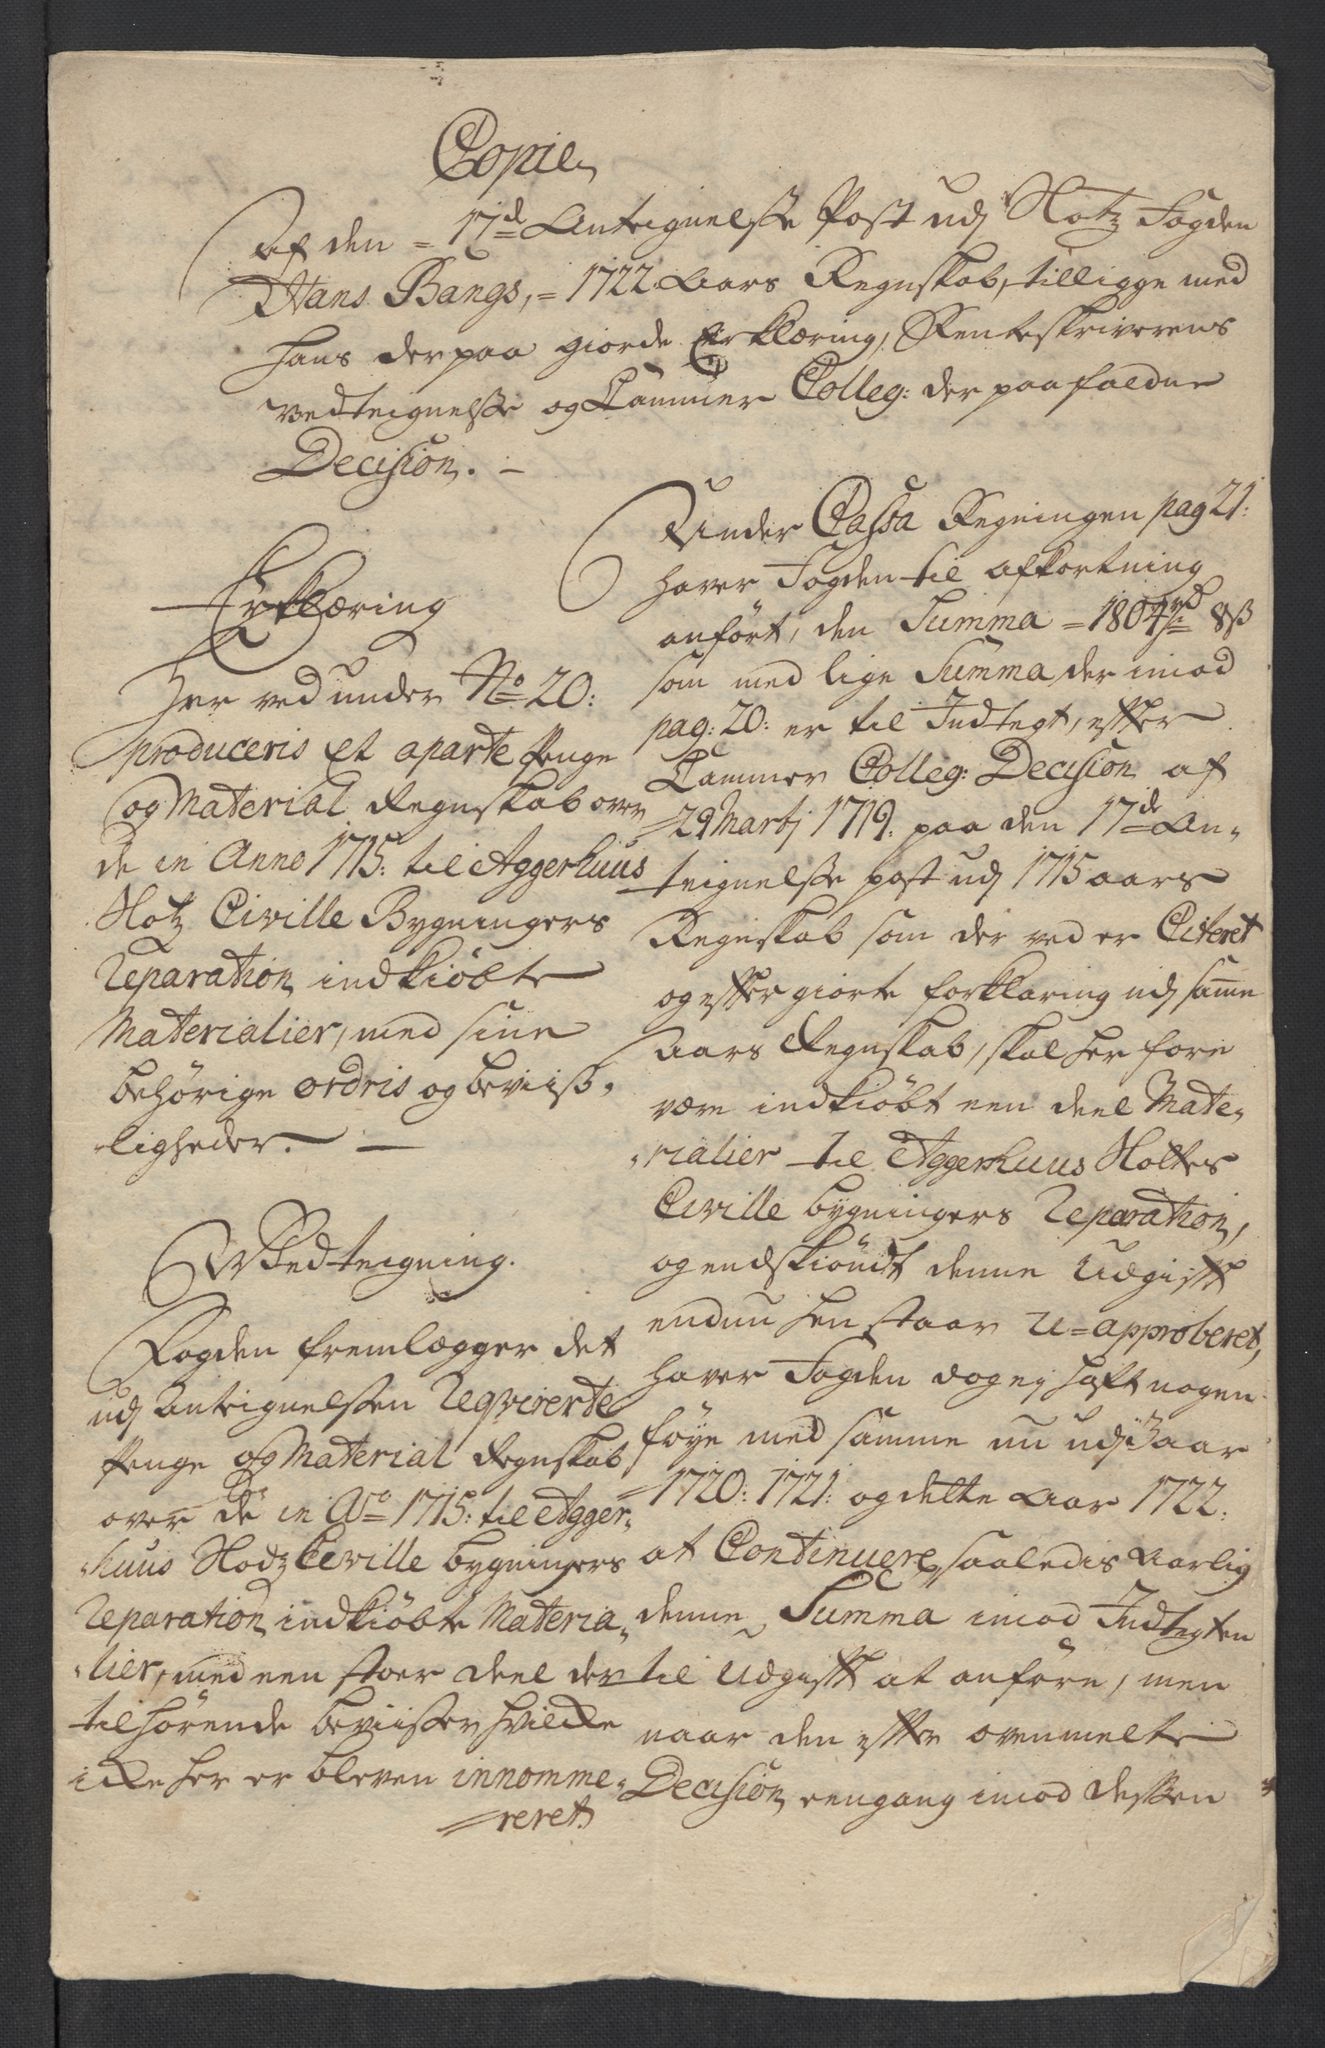 Copie
Af den 17d Antegnelse Post udj Slotz Fogden
Hans Bangs, 1722 Aars Regnskab, tillige med
hans derpaa giorde Erklæring, Renteskriverens
vedtegnelse og Cammer Colleg: der paa faldne
Decision.
Erklæring
Her ved under No 20:
produceris Et aparte Penge
og Material Regnskab over
de in Anno 1715: til Aggerhuus
Slotz Civille Bygningers
Reparation indkiöbte
Materialier, med sine
behörige ordris og beviiß-
ligheder.
Vedtegning.
Fogden fremlægger det
udj Antegnelsen Reqvirerte
Penge og Material Regnskab
over de in Ao 1715: til Agger-
huus Slodz Civille bygningers
Reparation indkiöbte Materia-
lier, med een stoer deel der
tilhörende beviisser hvilcke
icke her er bleven innomme-
reret.
Under Cassa Regningen pag 21:
haver Fogden til afkortning
anfört, den Summa 1804 rd 8 ß
som med lige Summa der imod
pag: 20: er til Indtegt, efter
Cammer Colleg: Decision af
29 Martj 1719: paa den 17de An-
tegnelse post udj 1715 aars
Regnskab som der ved er Citeret
og efter giorte forklaring udj samme
Aars Regnskab, skal her fore
være indkiöbt een deel Mate-
rialier til Aggerhuus Slottes
Civille bygningers Reparation,
og endskiöndt denne Udgift
endnu hen staar u-approberet,
haver Fogden dog ej haft nogen
föye med samme nu udj 3 aar
1720: 1721: og dette Aar 1722:
at Continuere saaledis Aarlig
denne Summa imod Indtegten
til Udgift at anföre, men
naar den efter ovenmelte
Decision eengang imod dessen